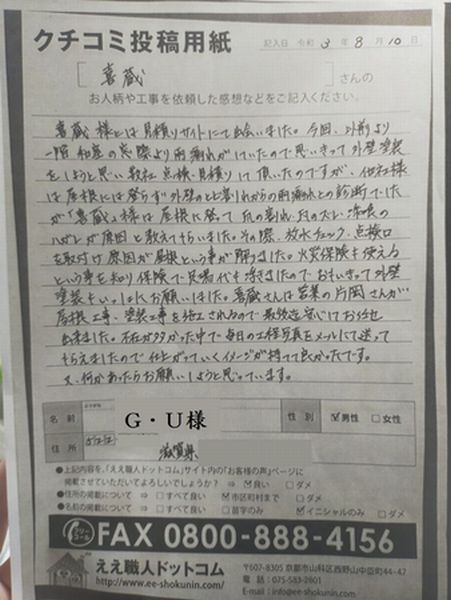 クチコミ投稿用紙
記入日 令和 3 年 8 月 10 日
喜蔵 さんの
お人柄や工事を依頼した感想などをご記入ください。
喜蔵様とは見積りサイトにて出会いました。今回、以前より
一階和室の窓際より雨漏れがしていたので思いきって外壁塗装
をしようと思い数社点検・見積りして頂いたのですが、他社様
は屋根には登らず外壁のヒビ割れからの雨漏れとの診断でした
が「喜蔵」様は屋根に登って瓦の割れ、瓦のズレ、漆喰の
ハガレが原因と教えてもらいました。その際、放水チェック、点検口
を取付け原因が屋根という事が解りました。火災保険も使える
という事を知り保険で足場代も浮きましたのでおもいきって外壁
塗装もいっしょにお願いしました。喜蔵さんは営業の片岡さんが
屋根工事、塗装工事を施工されるので最後迄安心してお任せ
出来ました。不在が多かった中で毎日の工程写真をメールにて送って
もらえましたので仕上がっていくイメージが持てて良かったです。
又、何かあったらお願いしようと思っています。
名前 G・U様 性別 ☑男性 □女性
住所 滋賀県
●上記内容を、「ええ職人ドットコム」サイト内の「お客様の声」ページに
掲載させていただいてよろしいでしょうか? ⇒ ☑良い □ダメ
●住所の掲載について ⇒ □すべて良い ☑市区町村まで □ダメ
●名前の掲載について ⇒ □すべて良い □苗字のみ ☑イニシャルのみ □ダメ
FAX 0800-888-4156
ええ職人ドットコム
http://www.ee-shokunin.com/
〒607-8305 京都市山科区西野山中臣町44-47
電話 : 075-583-2601
E-mail : info@ee-shokunin.com